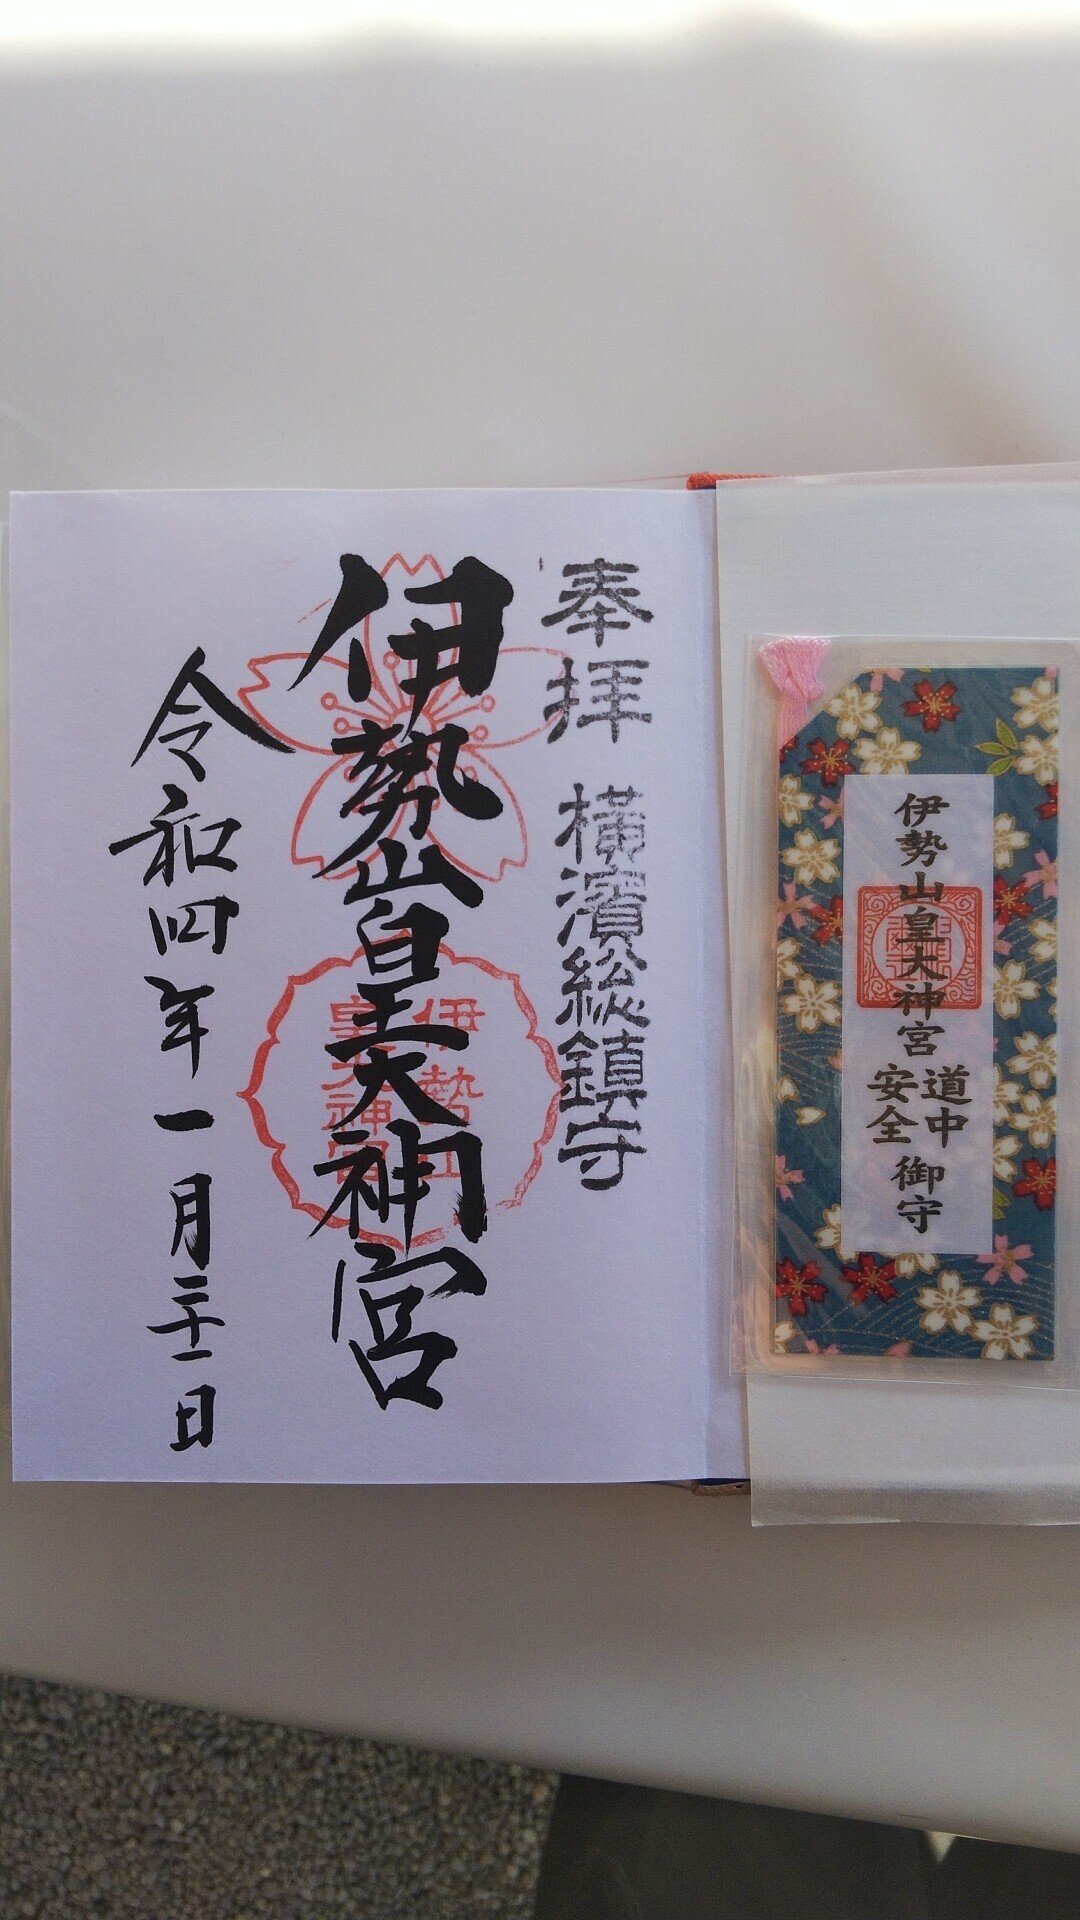 奉拝 横濱総鎮守
伊勢山皇大神宮
伊勢山
皇大神宮
令和四年一月三十一日
伊勢山皇大神宮
道中
安全
御守